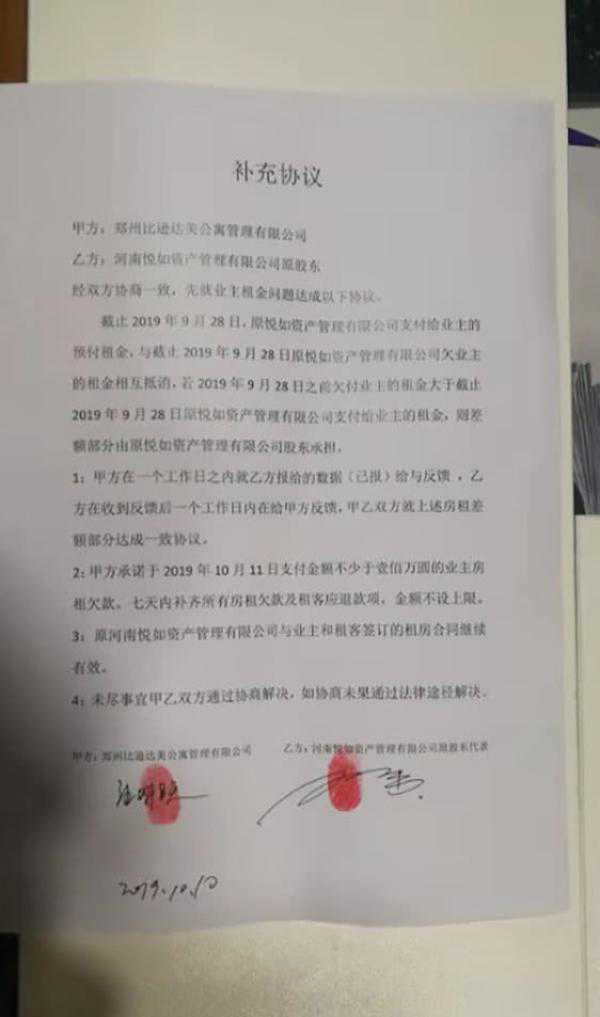 补充协议
甲方：郑州比逊达美公寓管理有限公司
乙方：河南悦如资产管理有限公司原股东
经双方协商一致，先就业主租金问题达成以下协议。
截止 2019 年 9 月 28 日，原悦如资产管理有限公司支付给业主的
预付租金，与截止 2019 年 9 月 28 日原悦如资产管理有限公司欠业主
的租金相互抵消，若 2019 年 9 月 28 日之前欠付业主的租金大于截止
2019 年 9 月 28 日原悦如资产管理有限公司支付给业主的租金，则差
额部分由原悦如资产管理有限公司股东承担。
1：甲方在一个工作日之内就乙方报给的数据（已报）给与反馈 ，乙
方在收到反馈后一个工作日内在给甲方反馈，甲乙双方就上述房租差
额部分达成一致协议。
2：甲方承诺于 2019 年 10 月 11 日支付金额不少于壹佰万圆的业主房
租欠款。七天内补齐所有房租欠款及租客应退款项，金额不设上限。
3：原河南悦如资产管理有限公司与业主和租客签订的租房合同继续
有效。
4：未尽事宜甲乙双方通过协商解决，如协商未果通过法律途径解决.
甲方：郑州比逊达美公寓管理有限公司 乙方：河南悦如资产管理有限公司原股东代表
2019.10.10